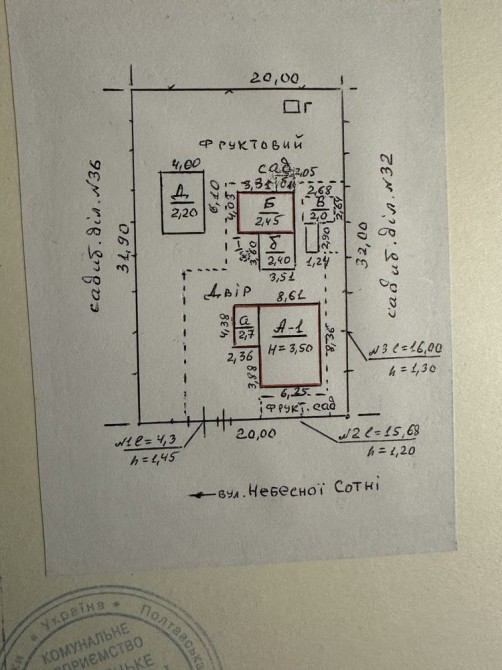 20,00
Г
Фруктовий
сад
4,00
2,05
3,31
б1
2,68
Д
2,20
6,10
4,03
Б
2,45
В
2,0
2,64
садиб.діл.№36
31,90
садиб.діл.№32
32,00
3,60
б
2,40
2,90
1,24
3,51
Двір
8,61
4,38
а
2,7
А-1
Н=3,50
8,36
2,36
3,88
6,25
Фрукт.сад
№3 l=16,00
h=1,30
№1 l=4,3
h=1,45
20,00
№2 l=15,68
h=1,20
вул.Небесної Сотні
Україна * Полтавська
КОМУНАЛЬНЕ